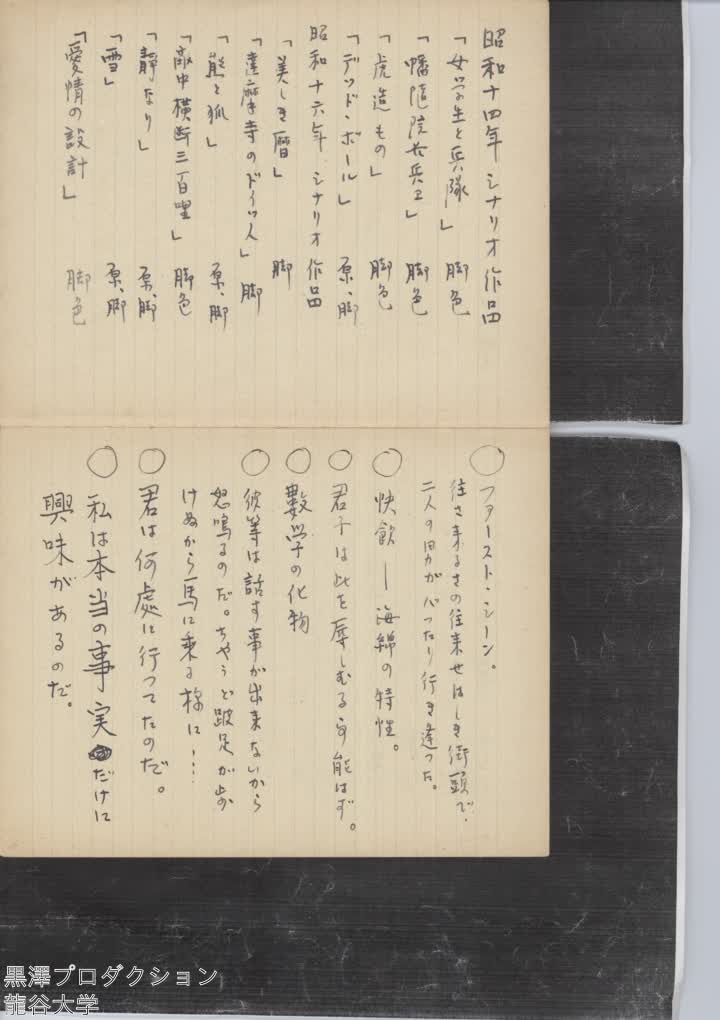 昭和十四年 シナリオ 作品
「女学生と兵隊」 脚色
「幡随院長兵衛」 脚色
「虎造もの」 脚色
「デッド・ボール」 原、脚
昭和十六年 シナリオ 作品
「美しき暦」 脚
「達磨寺のドイツ人」 脚
「熊と狐」 原、脚
「敵中横断三百里」 脚色
「静なり」 原、脚
「雪」 原、脚
「愛情の設計」 脚色
○ ファースト・シーン。
往さ来るさの往来せはしき街頭で、
二人の男がバッたり行き逢つた。
○ 快飲 ー 海綿の特性。
○ 君子は此を辱しむる事能はず。
○ 數学の化物
○ 彼等は話す事が出来ないから
怒鳴るのだ。ちやうど跛足が歩
けぬから馬に乗る様に…
○ 君は何處に行つてたのだ。
○ 私は本当の事実だけに
興味があるのだ。
黒澤プロダクション
龍谷大学